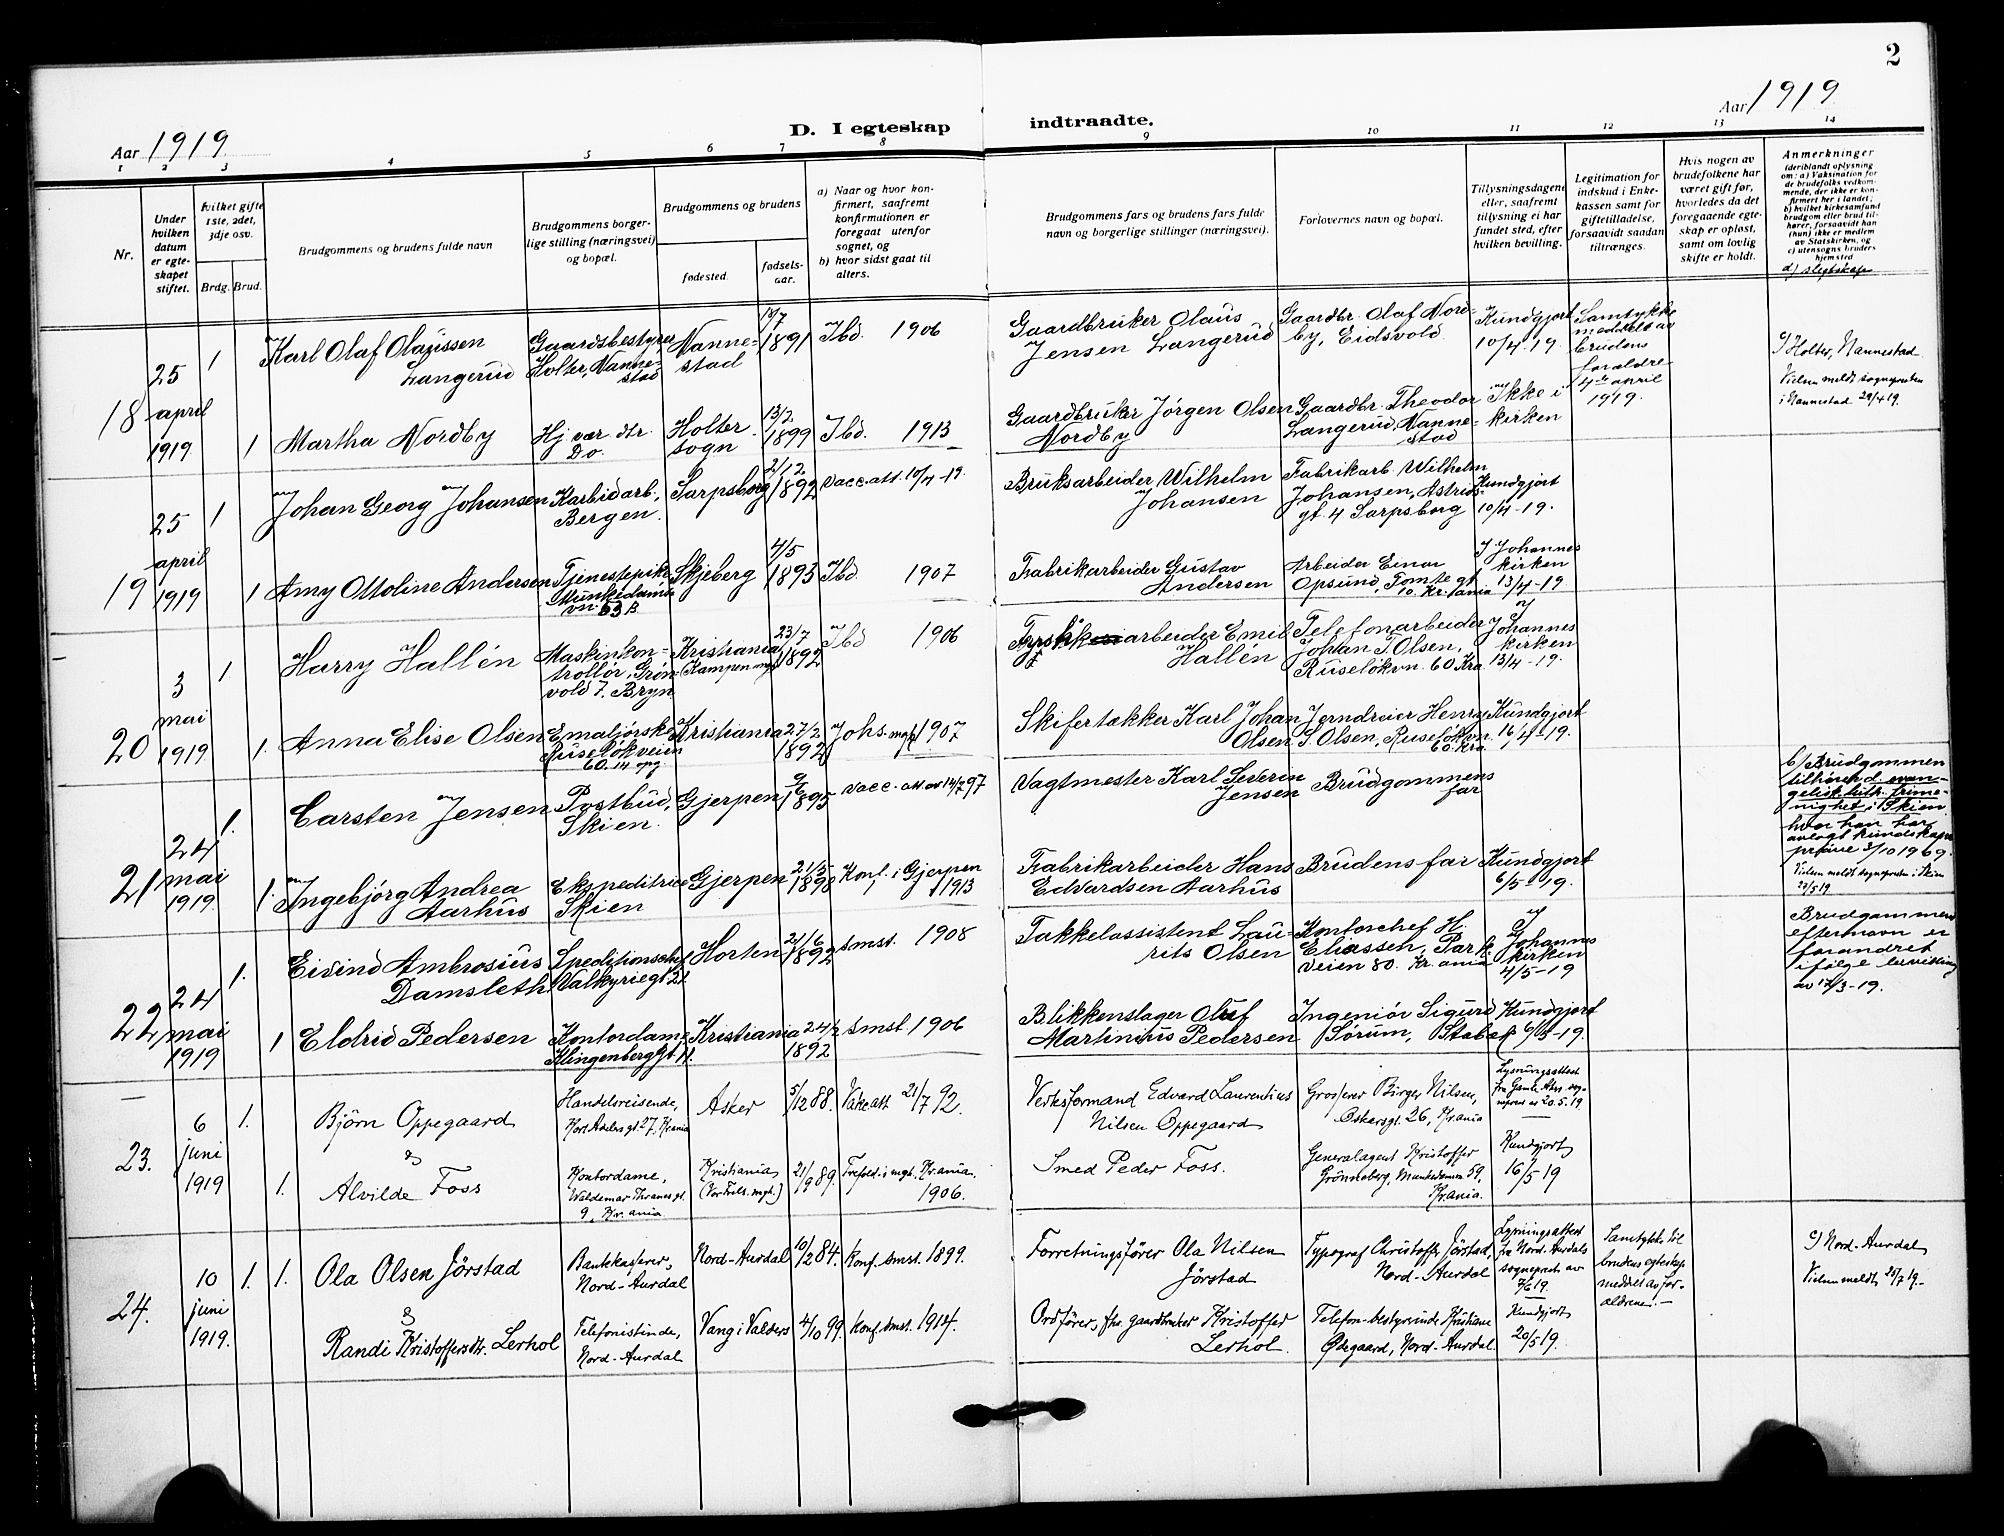 2
Aar 1919
D. I egteskap
indtraadte.
Aar 1919
1 2 3 4 5 6 7 8 9 10 11 12 13 14
Nr.
Under
hvilken
datum
er egte-
skapet
stiftet.
hvilket gifte
1ste, 2det,
3dje osv.
Brdg. Brud.
Brudgommens og brudens fulde navn
Brudgommens borger-
lige stilling (næringsvei)
og bopæl.
Brudgommens og brudens
fødested.
fødsels-
aar.
a) Naar og hvor kon-
firmert, saafremt
konfirmationen er
foregaat utenfor
sognet, og
b) hvor sidst gaat til
alters.
Brudgommens fars og brudens fars fulde
navn og borgerlige stillinger (næringsvei).
Forlovernes navn og bopæl.
Tillysningsdagene
eller, saafremt
tillysning ei har
fundet sted, efter
hvilken bevilling.
Legitimation for
indskud i Enke-
kassen samt for
giftetilladelse,
forsaavidt saadan
tiltrænges.
Hvis nogen av
brudefolkene har
været gift før,
hvorledes da det
foregaaende egte-
skap er opløst,
samt om lovlig
skifte er holdt.
Anmerkninger
(deriblandt oplysning
om: a) Vaksination for
de brudefolks vedkom-
mende, der ikke er kon-
firmert her i landet;
b) hvilket kirkesamfund
brudgom eller brud til-
hører, forsaavidt han
(hun) ikke er medlem
av Statskirken, og
c) utensogns bruders
hjemsted
d) slegtskap
18
25
april
1919
1
Karl Olaf Olaussen
Langerud
Gaardsbestyrer
Holter, Nanne-
stad
Nanne-
stad
1891
Ibd. 1906
Gaardbruker Olaus
Jensen Langerud
Gaardbr. Olaf Nord-
by, Eidsvold.
Kundgjort
10/4-19.
Samtykke
meddelt av
brudens
forældre
april
1919.
c/ Holter, Nannestad
Vielsen meldt sognepresten
i Nannestad 29/4 19.
1
Martha Nordby
Hj.vær. dtr.
Do.
Holter
sogn
13/2
1899
Ibd. 1913
Gaardbruker Jørgen Olsen
Nordby
Gaardbr. Theodor
Langerud, Nanne-
stad
Ikke i
kirken
19
25
april
1919
1
Johan Georg Johansen
Karbidarb.,
Bergen.
Sarpsborg
2/12
1892
Vacc.att. 10/4-19.
Bruksarbeider Wilhelm
Johansen
Fabrikarb. Wilhelm
Johansen, Astrids-
gt. 4 Sarpsborg
Kundgjort
10/4-19.
1
Amy Ottoline Andersen
Tjenestepike
Munkedams-
vn. 63 B
Skjeberg
4/5
1893
Ibd. 1907
Fabrikarbeider Gustav
Andersen
Arbeider Einar
Opsund, Tomtegt.
10. Kr.iania
I Johannes
kirken
13/4-19.
20
3
mai
1919
1
Harry Hallén
Maskinkon-
trollør, Grøn-
vold 7. Bryn
Kristiania
(Kampen mgh.)
23/7
1892
Ibd 1906
arbeider Emil
Hallén
Telefonarbeider
Johan T. Olsen,
Ruseløkvn. 60 Kra
I
Johannes
kirken
13/4-19.
1.
Anna Elise Olsen
Emaljørske
Ruseløkveien
60. 14 opg.
Kristiania
27/2
1892
Johs. mgh. 1907
Skifertækker Karl Johan
Olsen
Jerndreier Henry
T. Olsen, Ruseløkvn.
60. Kra
Kundgjort
16/4-19.
21
24
mai
1919.
1.
Carsten Jensen
Postbud,
Skien.
Gjerpen
1895
Vacc. att. av 14/7 97
Vagtmester Karl Severin
Jensen
Brudgommens
far
b/ Brudgommen
tilhører d. evan-
gelisk luth. frime-
nighet i Skien
hvor han har
avlagt kundskaps-
prøve 3/10 1909.
Vielsen meldt sognepresten i Skien
27/5 19
1.
Ingebjørg Andrea
Aarhus
Ekspeditrice
Skien
Gjerpen
21/5
1898
Konf. i Gjerpen
1913
Fabrikarbeider Hans
Edvardsen Aarhus
Brudens far
Kundgjort
6/5-19.
22
24
mai
1919
1.
Eivind Ambrosius
Damsleth
Speditionschef
Valkyriegt. 21.
Horten
21/6
1892
Smst. 1908
Takkelassistent Lau-
rits Olsen
Kontorchef H.
Eliassen, Park-
veien 80. Kr.ania
I
Johannes
kirken
4/5-19
Brudgommens
efternavn er
forandret
ifølge bevilling
av 17/3-19.
1
Eldrid Pedersen
Kontordame
Klingenberggt. 11.
Kristiania
24/2
1892
Smst. 1906
Blikkenslager Oluf
Martinius Pedersen
Ingeniør Sigurd
Sørum, Stabæk
Kundgjort
6/5-19.
23.
6
juni
1919
1.
Bjørn Oppegaard
&
Handelsreisende,
Karl Adelers gt. 27, Kr.ania
Asker
5/12 88.
Vakc att 21/7 92.
Verksformand Edvard Laurentius
Nilsen Oppegaard
Grosserer Birger Nilsen,
Oskarsgt. 26, Kr.ania
Lysningsattest
fra Gamle Akers sog-
neprest av 20.5.19
1.
Alvilde Foss
Kontordame,
Waldemar Thranes gt.
9, Kr.ania
Kristiania
(Vor Frels. mgh.)
21/9 89.
Trefold. i mgh. Kr.ania.
1906.
Smed Peder Foss.
Generalagent Kristoffer
Grönneberg, Munkedamsvn 59,
Kr.ania.
Kundgjort
16/5 19
24.
10
juni
1919.
1. 1.
Ola Olsen Jörstad
&
Bankkasserer,
Nord-Aurdal
Nord-Aurdal
10/2 84.
Konf. Smst. 1899.
Forretningsfører Ola Nilsen
Jörstad
Typograf Christoffer Jörstad,
Nord-Aurdal
Lysningsattest
fra Nord-Aurdals
sogneprest av
7/6 19.
Samtykke til
brudens egteskap
meddelt av for-
ældrene.-
c/ Nord-Aurdal
Vielsen meldt 25/7 19.-
Randi Kristoffersdtr. Lerhol
Telefonistinde,
Nord-Aurdal
Vang i Valders
4/10 99.
Konf. Smst. 1914.
Ordförer, fhv. gaardbruker Kristoffer
Lerhol.
Telefon-bestyrerinde Kristiane
Ödegaard, Nord-Aurdal.
Kundgjort
20/5 19.